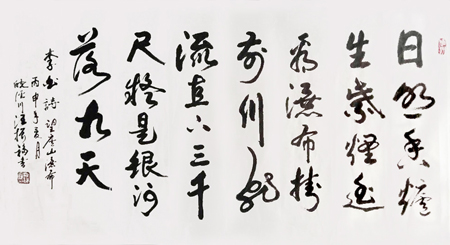 日照香爐
生紫煙遥
看瀑布掛
前川飛
流直下三千
尺疑是銀河
落九天
李白詩望庐山瀑布
丙申年夏月